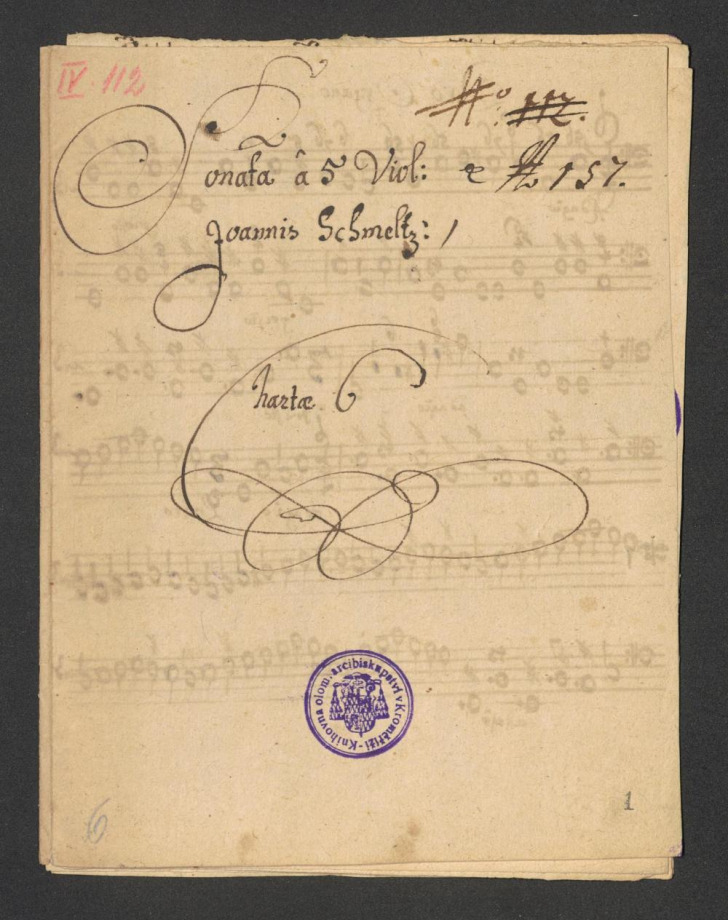 IV. 112
No. 112.
Sonata â 5 Viol: e No 157.
Joannis Schmeltz: /
Chartæ 6
Knihovna olom. arcibiskupství v Kroměříži
6
1